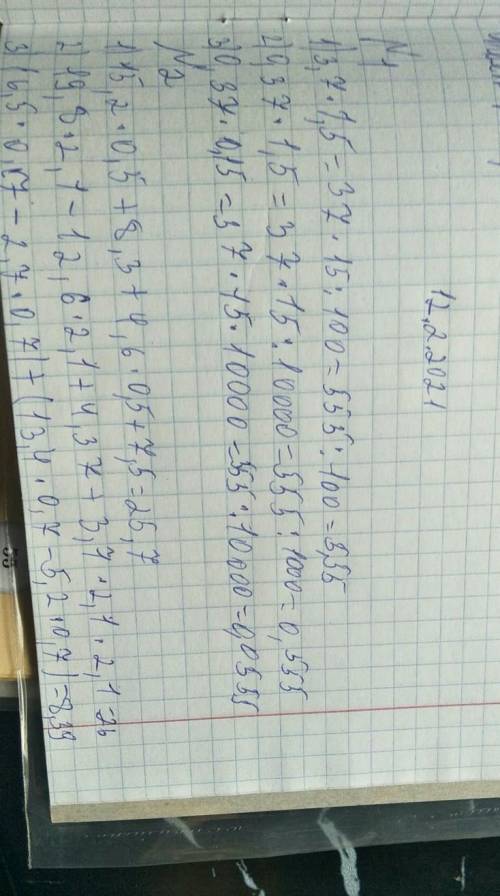 12.2.2021
N1
1) 3,7·1,5=37·15:100=555:100=5,55
2) 0,37·1,5=37·15:10000=555:1000=0,555
3) 0,37·0,15=37·15:10000=555:10000=0,0555
N2
1) 15,2·0,5+8,3+4,6·0,5+7,5=25,7
2) 19,8·2,1-12,6·2,1+4,37+3,7·2,1·2,1=26
3) (6,5·0,07-2,7·0,7)+(13,4·0,7-5,2·0,7)=8,39